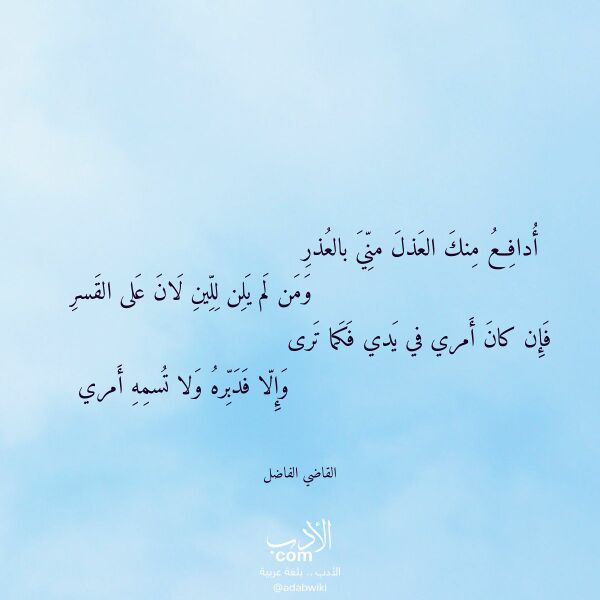 أُدافِعُ مِنكَ العَذلَ مِنِّيَ بالعُذرِ
وَمَن لَم يَلِن لِلِّينِ لَانَ عَلى القَسرِ
فَإِن كانَ أَمري في يَدي فَكَما تَرى
وَإِلّا فَدَبِّرهُ وَلا تُسمِهِ أَمري
القاضي الفاضل
الأدب
com
الأدب .. بلغة عربية
@adabwiki